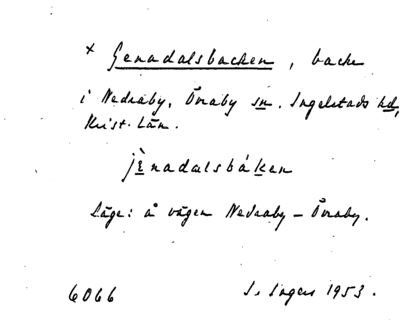 × Genadalsbacken, backe
i Nedraby, Övraby sn. Ingelstads hd,
Krist. Län.
jènadalsbáken
Läge: å vägen Nedraby – Övraby.
6066 S. Ingers 1953.